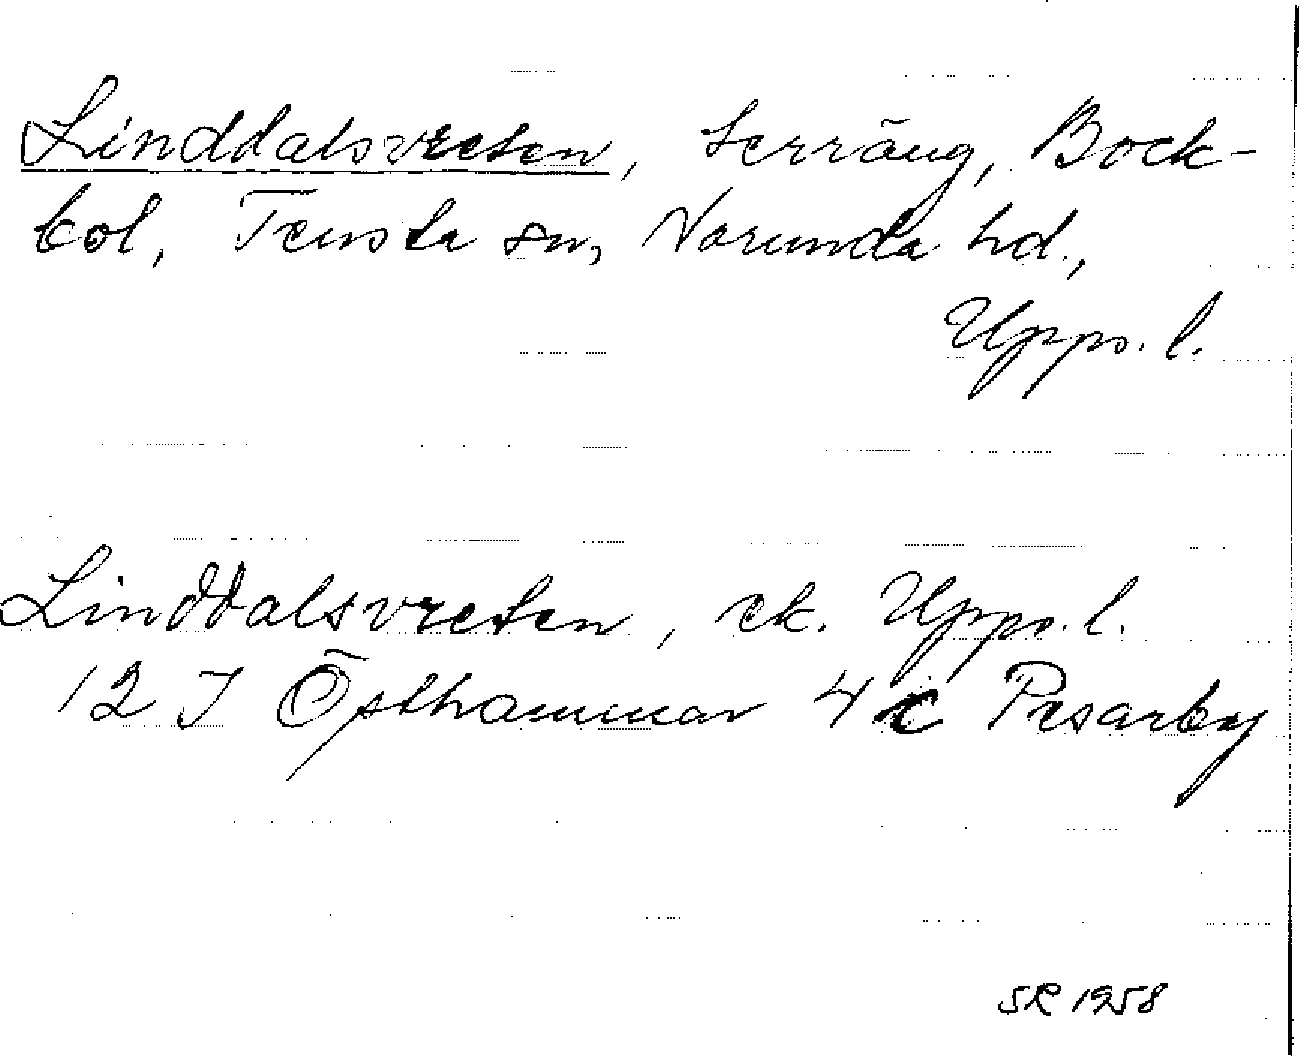 Linddalsvreten, terräng, Bock-
bol, Tensta sn, Norunda hd.,
Upps. l.
Linddalsvreten, ek. Upps. l.
12 I Östhammar 4 c Presarby
SR 1958